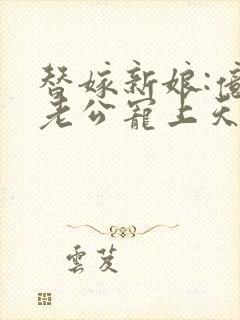 替嫁新娘:億
老公寵上天
雲芨